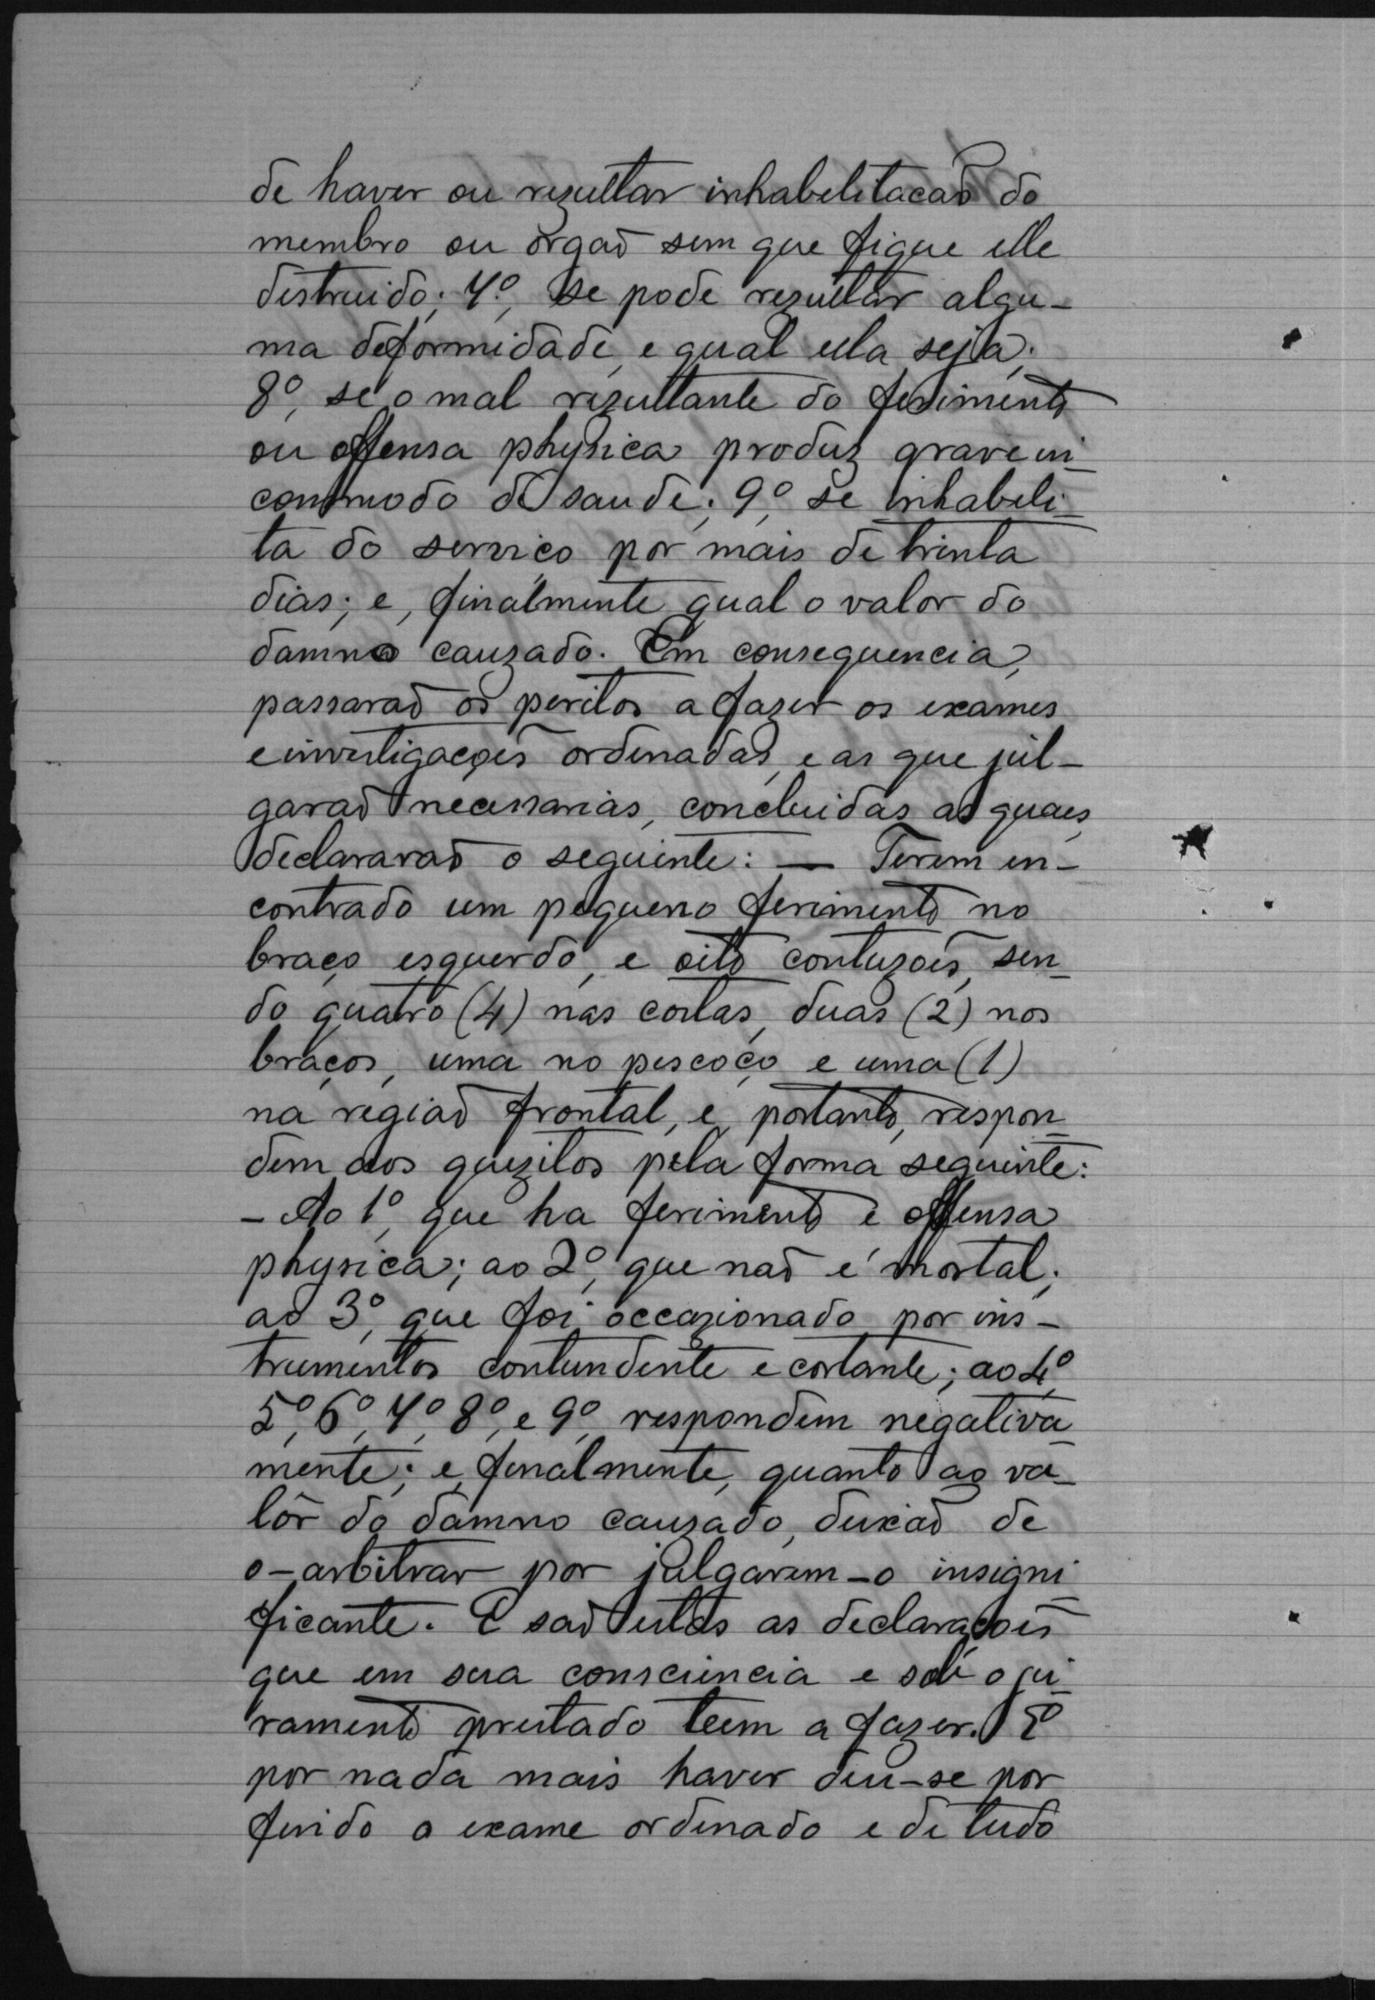 de haver ou rezultar inhabelitacaõ do
membro ou orgaõ sem que fique elle
destruido; 7º, se pode rezultar algu-
ma deformidade, e qual ella seja;
8º, se o mal rezultante do ferimento
ou offensa physica produz grave in-
commodo de saude; 9º, se inhabeli-
ta do serviço por mais de trinta
dias; e, finalmente qual o valor do
damno cauzado. Em consequencia,
passaraõ os peritos a fazer os exames
e investigações ordenadas, e as que jul-
garaõ necessarias, concluidas as quaes,
declararaõ o seguinte: — Terem en-
contrado um pequeno ferimento no
braço esquerdo, e oito contuzoẽs, sen-
do quatro (4) nas costas, duas (2) nos
braços, uma no pescoço e uma (1)
na regiaõ frontal, e, portanto, respon-
dem aos quezitos pela forma seguinte:
- Ao 1º, que ha ferimento e offensa
physica; ao 2º, que naõ é mortal;
ao 3º, que foi occazionado por ins-
trumentos contundente e cortante; ao 4º,
5º, 6º, 7º, 8º, e 9º, respondem negativa-
mente; e, finalmente, quanto ao va-
lôr do damno cauzado, deixaõ de
o-arbitrar por julgarem-o insigni-
ficante. E saõ estas as declaraçoẽs
que em sua consciencia e sob o ju-
ramento prestado teem a fazer. E
por nada mais haver deu-se por
findo o exame ordenado e de tudo